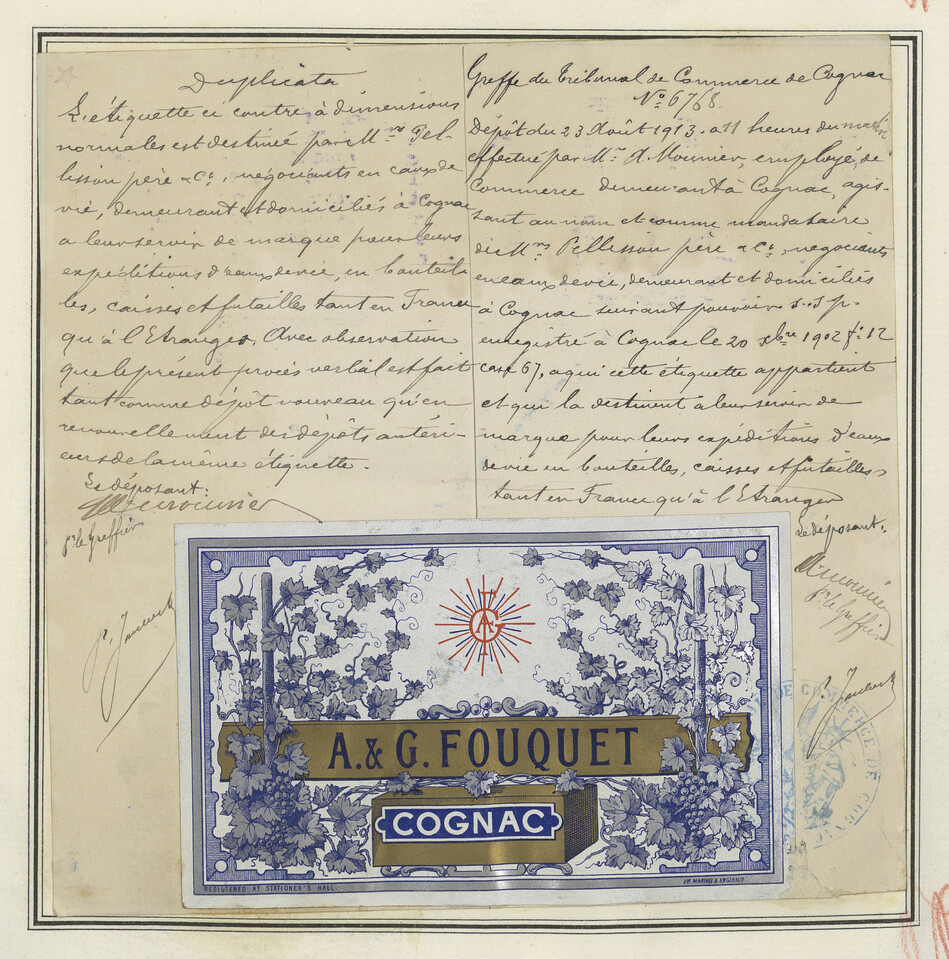 Duplicata
L'étiquette ci contre à dimensions
normales est destinée par M.rs Pel-
lisson père & Cie, négociants en eaux de
vie, demeurant et domiciliés à Cognac
a leur servir de marque pour leurs
expéditions d'eaux de vie, en bouteil-
les, caisses et futailles tant en France
qu'à l'Etranger. Avec observation
que le présent procès verbal est fait
tant comme dépôt nouveau qu'en
renouvellement des dépôts antéri-
eurs de la même étiquette.
Le déposant:
pr le Greffier
Greffe du Tribunal de Commerce de Cognac
No 6768
Dépôt du 23 Août 1913. à 11 heures du matin
effectué par Mr A. Mounier, employé de
Commerce demeurant à Cognac, agis-
sant au nom et comme mandataire
de Mrs Pellisson père & Cie, négociants
en eaux de vie, demeurant et domiciliés
à Cognac suivant pouvoir s.s.p.
enregistré à Cognac le 20 xbre 1902 fo 12
case 67, a qui cette étiquette appartient
et qui la destinent à leur servir de
marque pour leurs expéditions d'eaux
de vie en bouteilles, caisses et futailles
tant en France qu'à l'Etranger
Le déposant:
A Mounier
pr le Greffier
AG
A. & G. FOUQUET
COGNAC
REGISTERED AT STATIONER'S HALL.
DE COMMERCE DE COGNAC